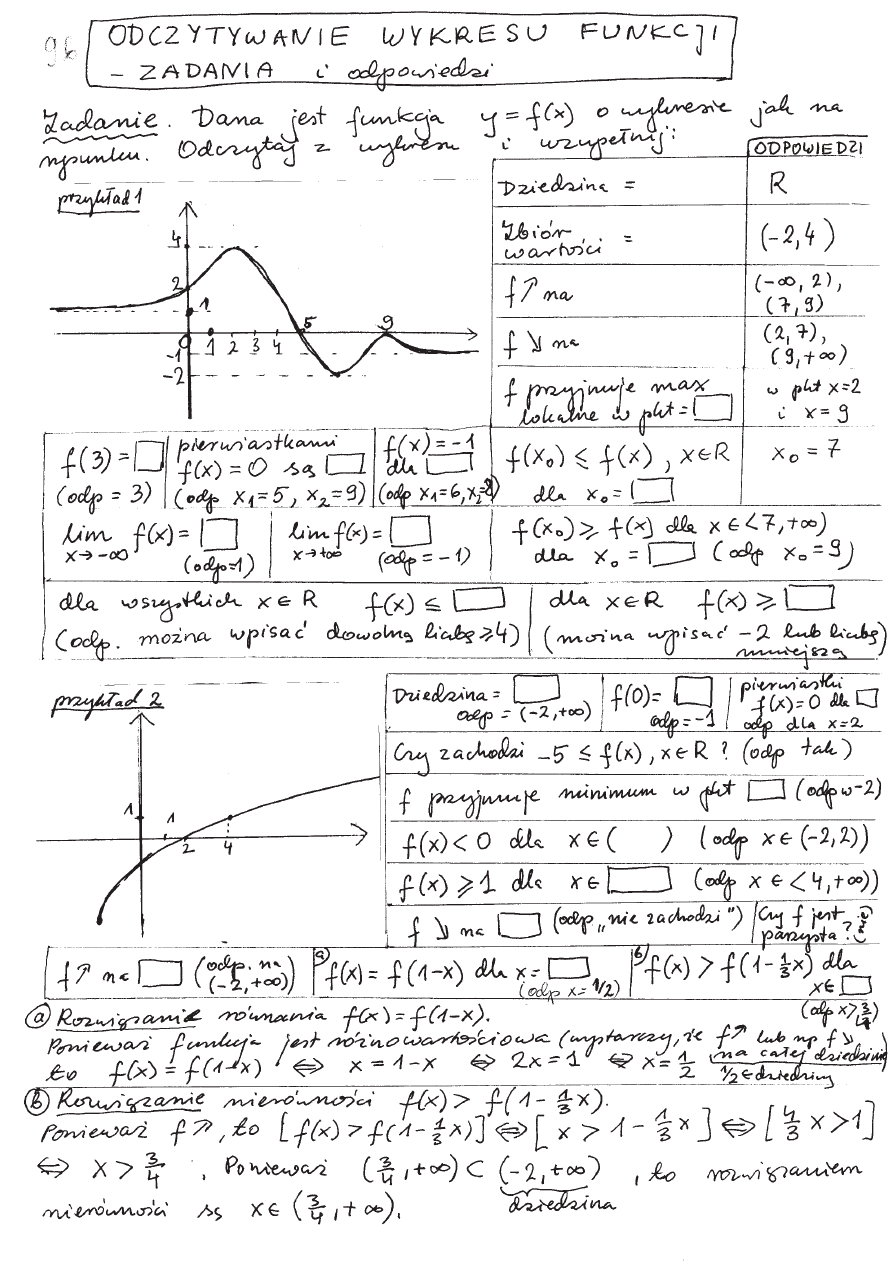 96
ODCZYTYWANIE WYKRESU FUNKCJI
- ZADANIA i odpowiedzi
Zadanie. Dana jest funkcja y = f(x) o wykresie jak na
rysunku. Odczytaj z wykresu i uzupełnij:
ODPOWIEDZI
przykład 1
4
2
1
0
-1
-2
1 2 3 4 5 9
Dziedzina = R
Zbiór wartości = (-2,4)
f↗ na (-∞, 2), (7,9)
f↘ na (2,7), (9,+∞)
f przyjmuje max lokalne w pkt = □ w pkt x=2 i x=9
f(3) = □ (odp = 3)
pierwiastkami f(x)=0 są □ (odp x₁=5, x₂=9)
f(x)=-1 dla □ (odp x₁=6, x₂=8)
f(x₀) ≤ f(x), x∈R dla x₀=□ x₀=7
lim x→-∞ f(x)=□ (odp=1)
lim x→+∞ f(x)=□ (odp=-1)
f(x₀) ≥ f(x) dla x∈<7,+∞)
dla x₀=□ (odp x₀=9)
dla wszystkich x∈R f(x) ≤ □
(odp. można wpisać dowolną liczbę ≥4)
dla x∈R f(x) ≥ □
(można wpisać -2 lub liczbę mniejszą
przykład 2
1
1
2 4
Dziedzina = □ odp = (-2,+∞)
f(0)=□ odp=-1
pierwiastki f(x)=0 dla □ odp dla x=2
Czy zachodzi -5 ≤ f(x), x∈R ? (odp tak)
f przyjmuje minimum w pkt □ (odp w -2)
f(x)<0 dla x∈( ) (odp x∈(-2,2))
f(x)≥1 dla x∈□ (odp x∈<4,+∞))
f↘ na □ (odp „nie zachodzi")
Czy f jest parzysta? (nie)
f↗ na □ (odp. na (-2,+∞))
a) f(x)=f(1-x) dla x=□ (odp x=1/2)
b) f(x) > f(1-⅓x) dla x∈□ (odp x>¾)
ⓐ Rozwiązanie równania f(x)=f(1-x).
Ponieważ funkcja jest różnowartościowa (wystarczy, że f↗ lub np f↘ na całej dziedzinie
to f(x)=f(1-x) ⇔ x=1-x ⇔ 2x=1 ⇔ x=½ 1/2∈dziedziny
ⓑ Rozwiązanie nierówności f(x) > f(1-⅓x).
Ponieważ f↗, to [f(x)>f(1-⅓x)] ⇔ [x > 1-⅓x] ⇔ [4/3 x>1]
⇔ x>¾. Ponieważ (¾,+∞) ⊂ (-2,+∞), to rozwiązaniem
dziedzina
nierówności są x∈(¾,+∞).